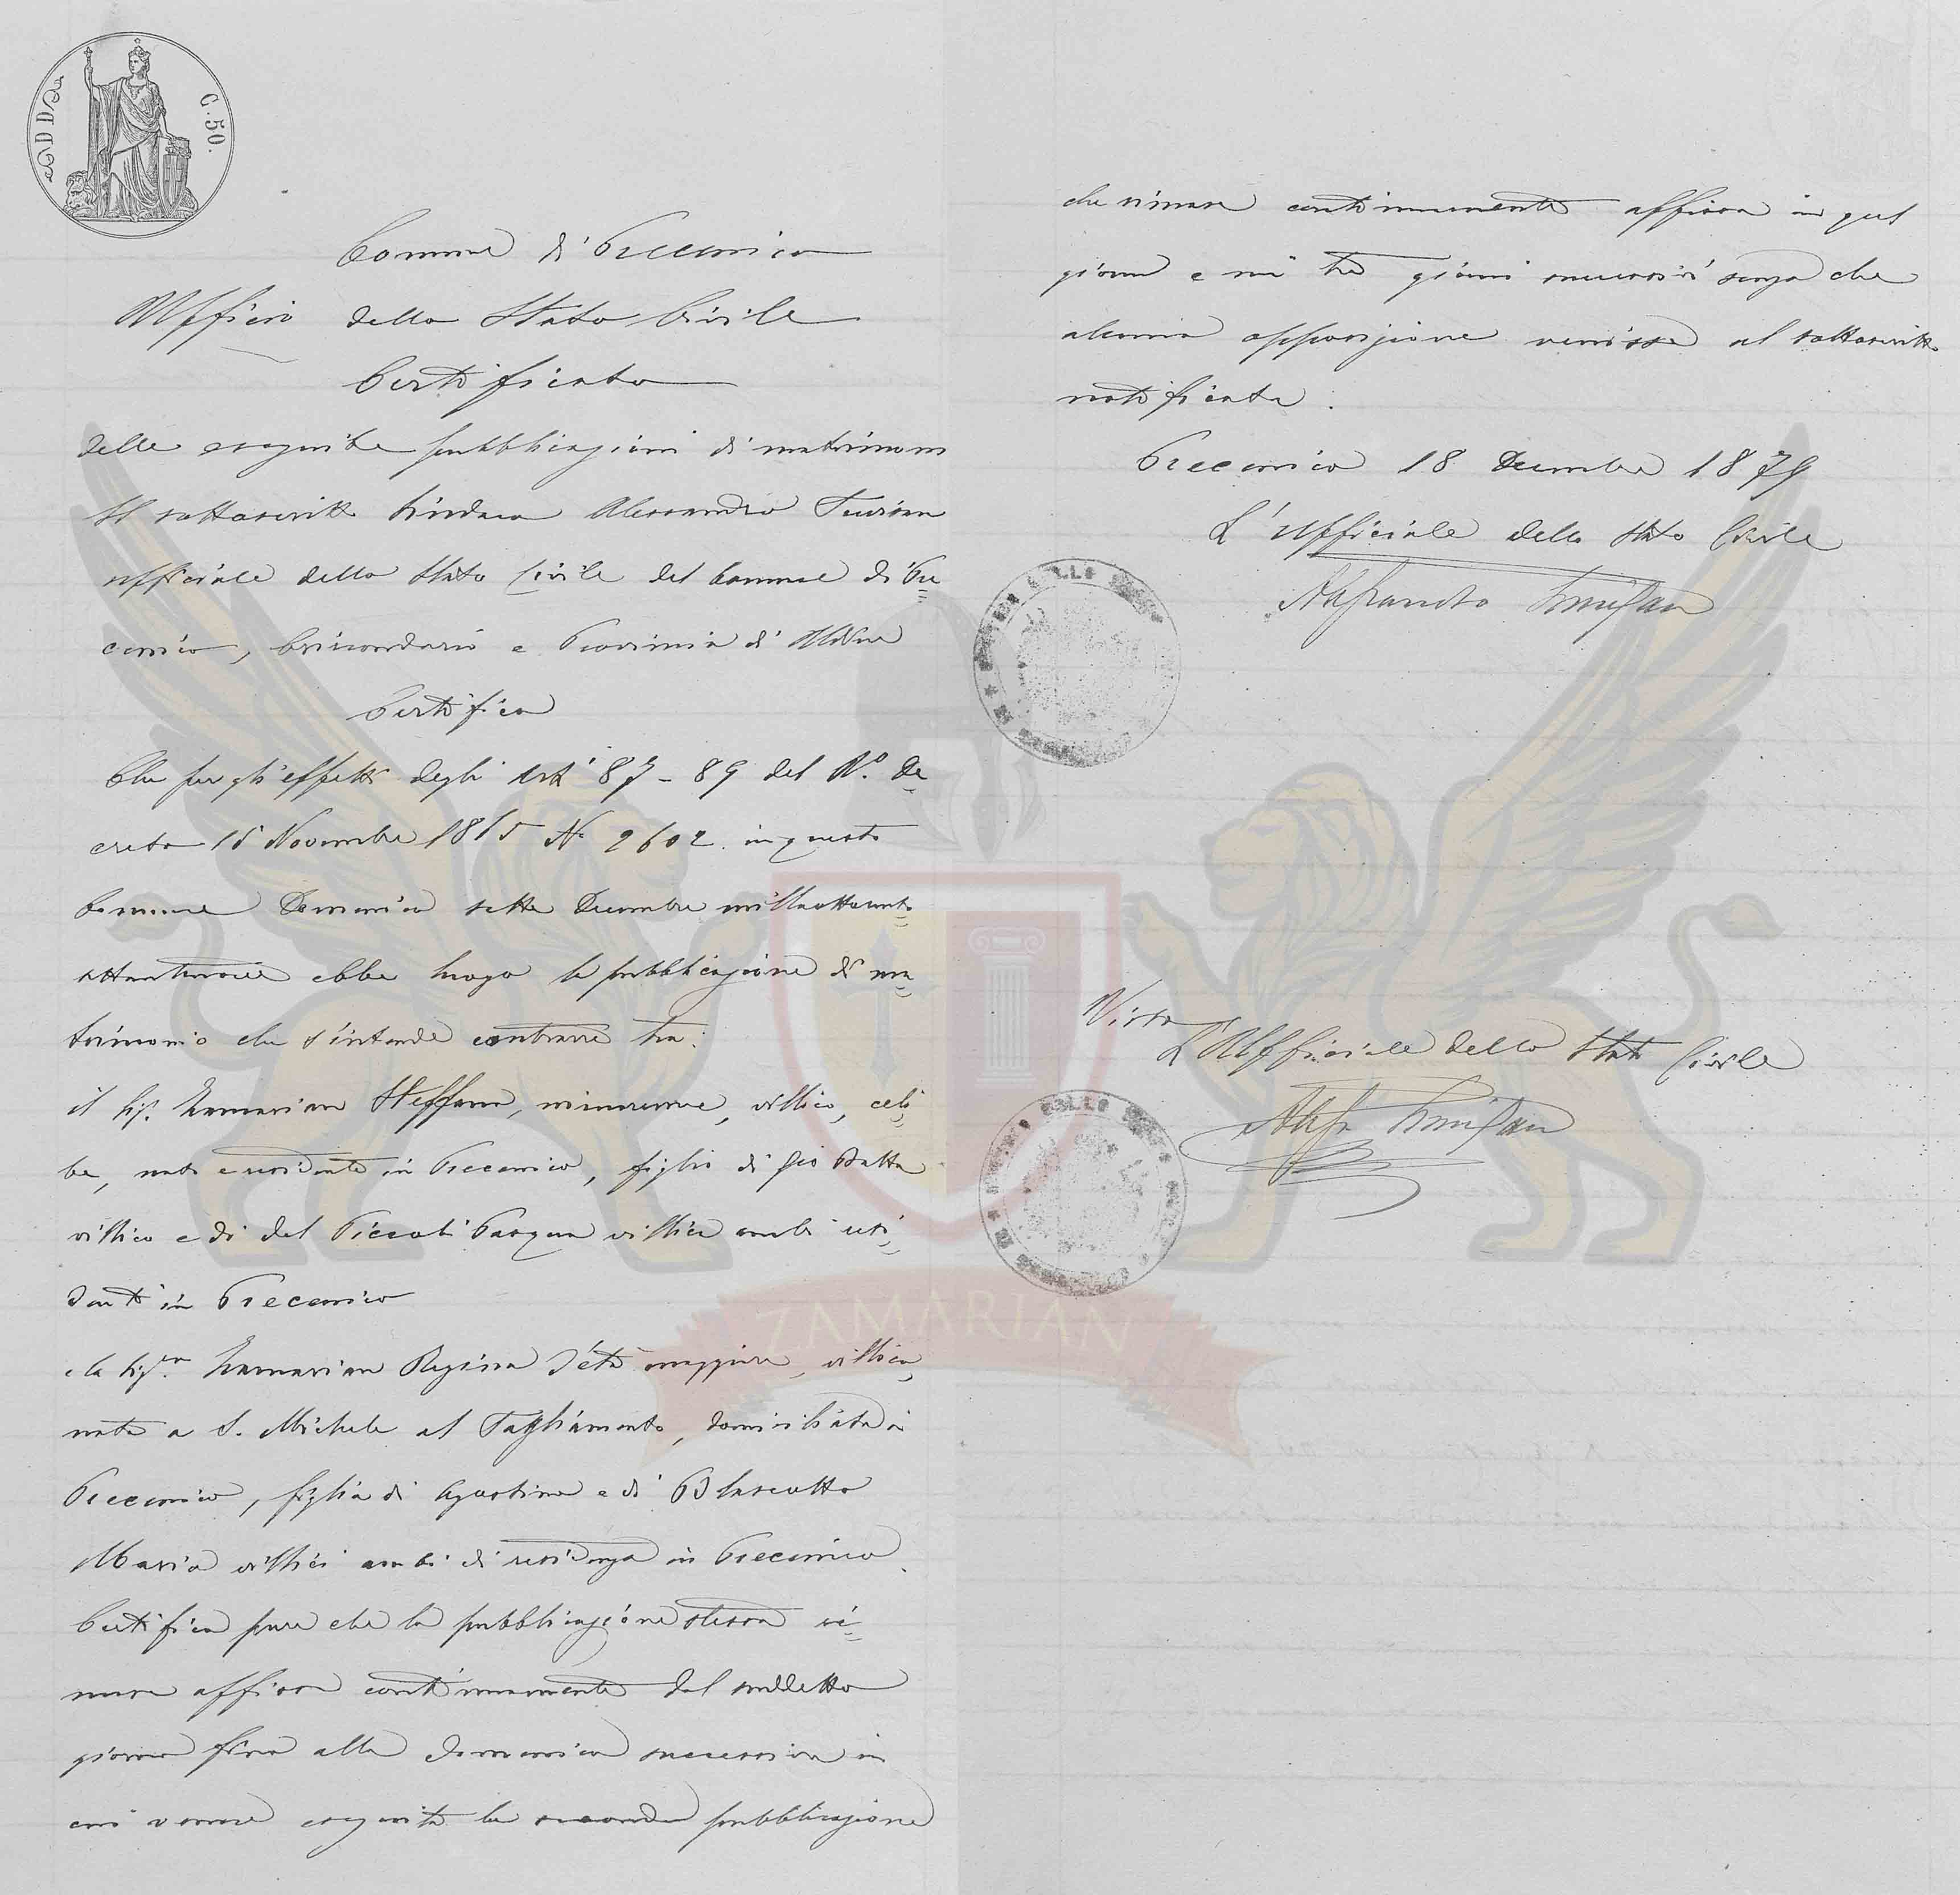 C. 50.
Comune di Precenico
Ufficio dello Stato Civile
Certificato
delle eseguite pubblicazioni di matrimonio
Il sottoscritto Sindaco Alessandro
ufficiale dello Stato Civile del Comune di Pre
cenico, Circondario e Provincia di Udine
Certifica
Che per gli effetti degli Art.i 87 - 89 del R.o De
creto 15 Novembre 1865 N. 2602 in questo
Comune Domenica sette Decembre milleottocento
settantanove ebbe luogo la pubblicazione di ma
trimonio che s'intende contrarre tra:
il Sig. Zamarian Steffano, minorenne, villico, celi
be, nato e residente in Precenico, figlio di Gio Batta
villico e di del Piccolo Pasqua villica ambi resi
denti in Precenico
e la Sig.ra Zamarian Regina d'età maggiore, villica,
nata a S. Michele al Tagliamento, domiciliata in
Precenico, figlia di Agostino e di
Maria villici ambi di residenza in Precenico.
Certifica pure che la pubblicazione stessa ri
mase affissa continuamente dal suddetto
giorno fino alla domenica successiva in
cui venne eseguita la seconda pubblicazione
che rimase continuamente affissa in quel
giorno e nei tre giorni successivi senza che
alcuna opposizione venisse al sottoscritto
notificata.
Precenico 18 Decembre 1879
L'Ufficiale dello Stato Civile
Visto
L'Ufficiale dello Stato Civile
ZAMARIAN